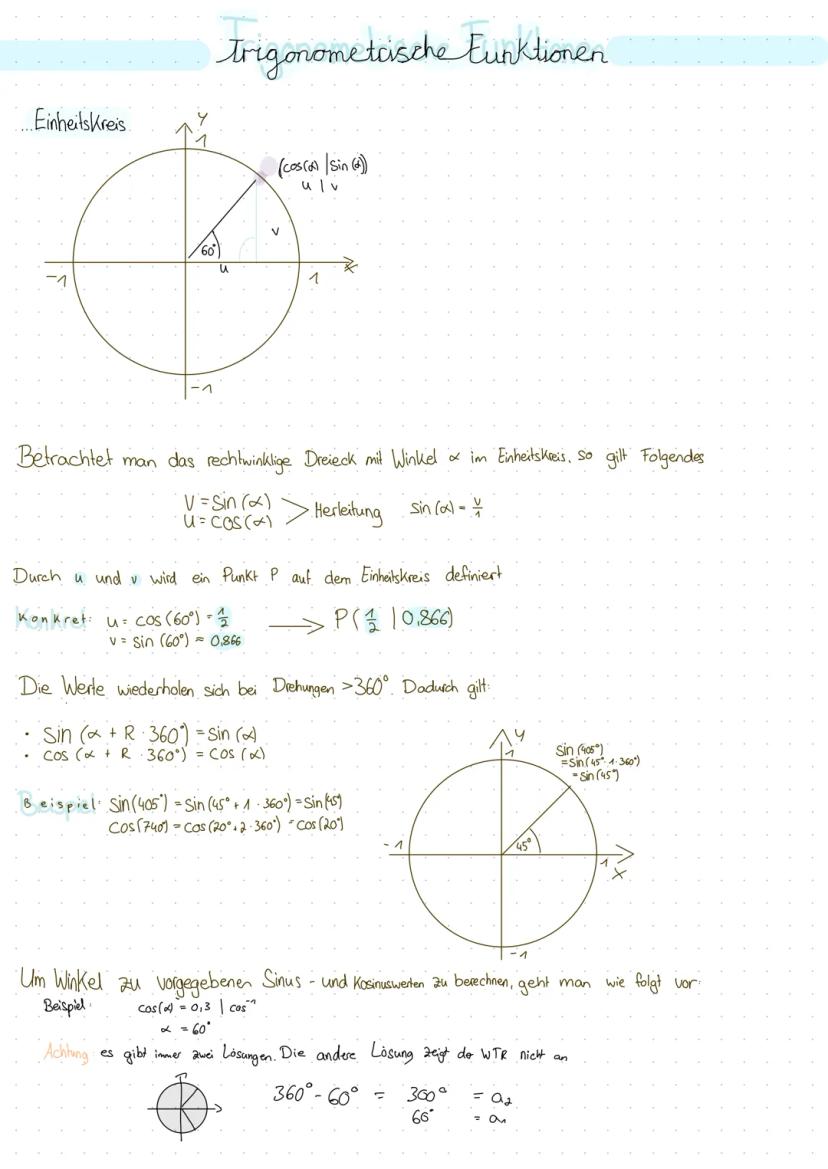 Trigonometrische Funktionen
...Einheitskreis
y
1
(cos(α) | sin(α))
u | v
v
60°
u
-1
1
x
-1
Betrachtet man das rechtwinklige Dreieck mit Winkel α im Einheitskreis, so gilt Folgendes
V = Sin (α)
u = cos (α)
> Herleitung sin (α) = v/1
Durch u und v wird ein Punkt P auf dem Einheitskreis definiert
Konkret: u = cos (60°) = 1/2
v = sin (60°) ≈ 0,866
→ P ( 1/2 | 0,866)
Die Werte wiederholen sich bei Drehungen >360°. Dadurch gilt:
• Sin (α + R · 360°) = Sin (α)
• cos (α + R · 360°) = cos (α)
Beispiel: Sin (405°) = Sin (45° + 1 · 360°) = Sin (45°)
Cos (740°) = Cos (20° + 2 · 360°) = Cos (20°)
y
1
Sin (405°)
= Sin (45° · 1 · 360°)
= Sin (45°)
45°
-1
1
x
-1
Um Winkel zu vorgegebenen Sinus - und Kosinuswerten zu berechnen, geht man wie folgt vor:
Beispiel: cos(α) = 0,3 | cos⁻¹
α = 60°
Achtung es gibt immer zwei Lösungen. Die andere Lösung zeigt der WTR nicht an
360° - 60° = 300° = a₂
60° = a₁